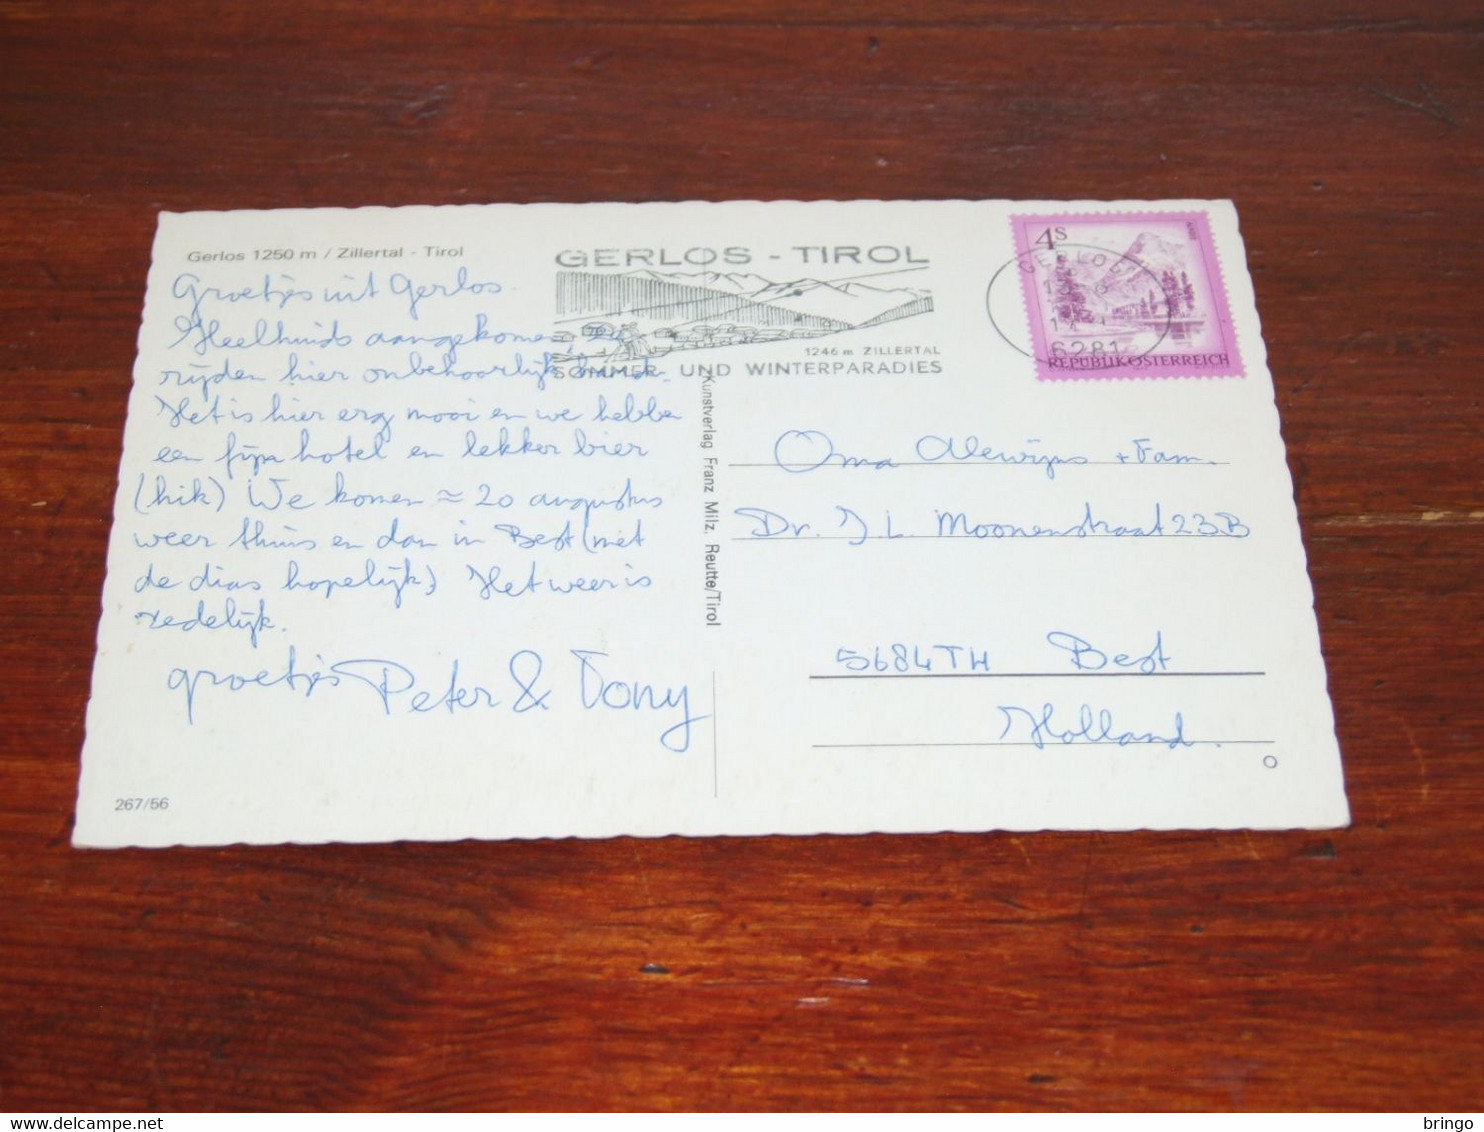 Gerlos 1250 m / Zillertal - Tirol
Groetjes uit Gerlos.
Heelhuids aangekomen, ze
rijden hier onbehoorlijk hard.
Het is hier erg mooi en we hebben
een fijn hotel en lekker bier
(hik) We komen ≈ 20 augustus
weer thuis en dan in Best (met
de dias hopelijk) Het weer is
redelijk.
groetjes Peter & Tony
267/56
GERLOS - TIROL
1246 m ZILLERTAL
SOMMER- UND WINTERPARADIES
Kunstverlag Franz Milz, Reutte/Tirol
4S
GERLOS
6281
REPUBLIK ÖSTERREICH
Oma Alewijns + Fam.
Dr. J. L. Moonenstraat 23B
5684TH Best
Holland.
delcampe.net
bringo